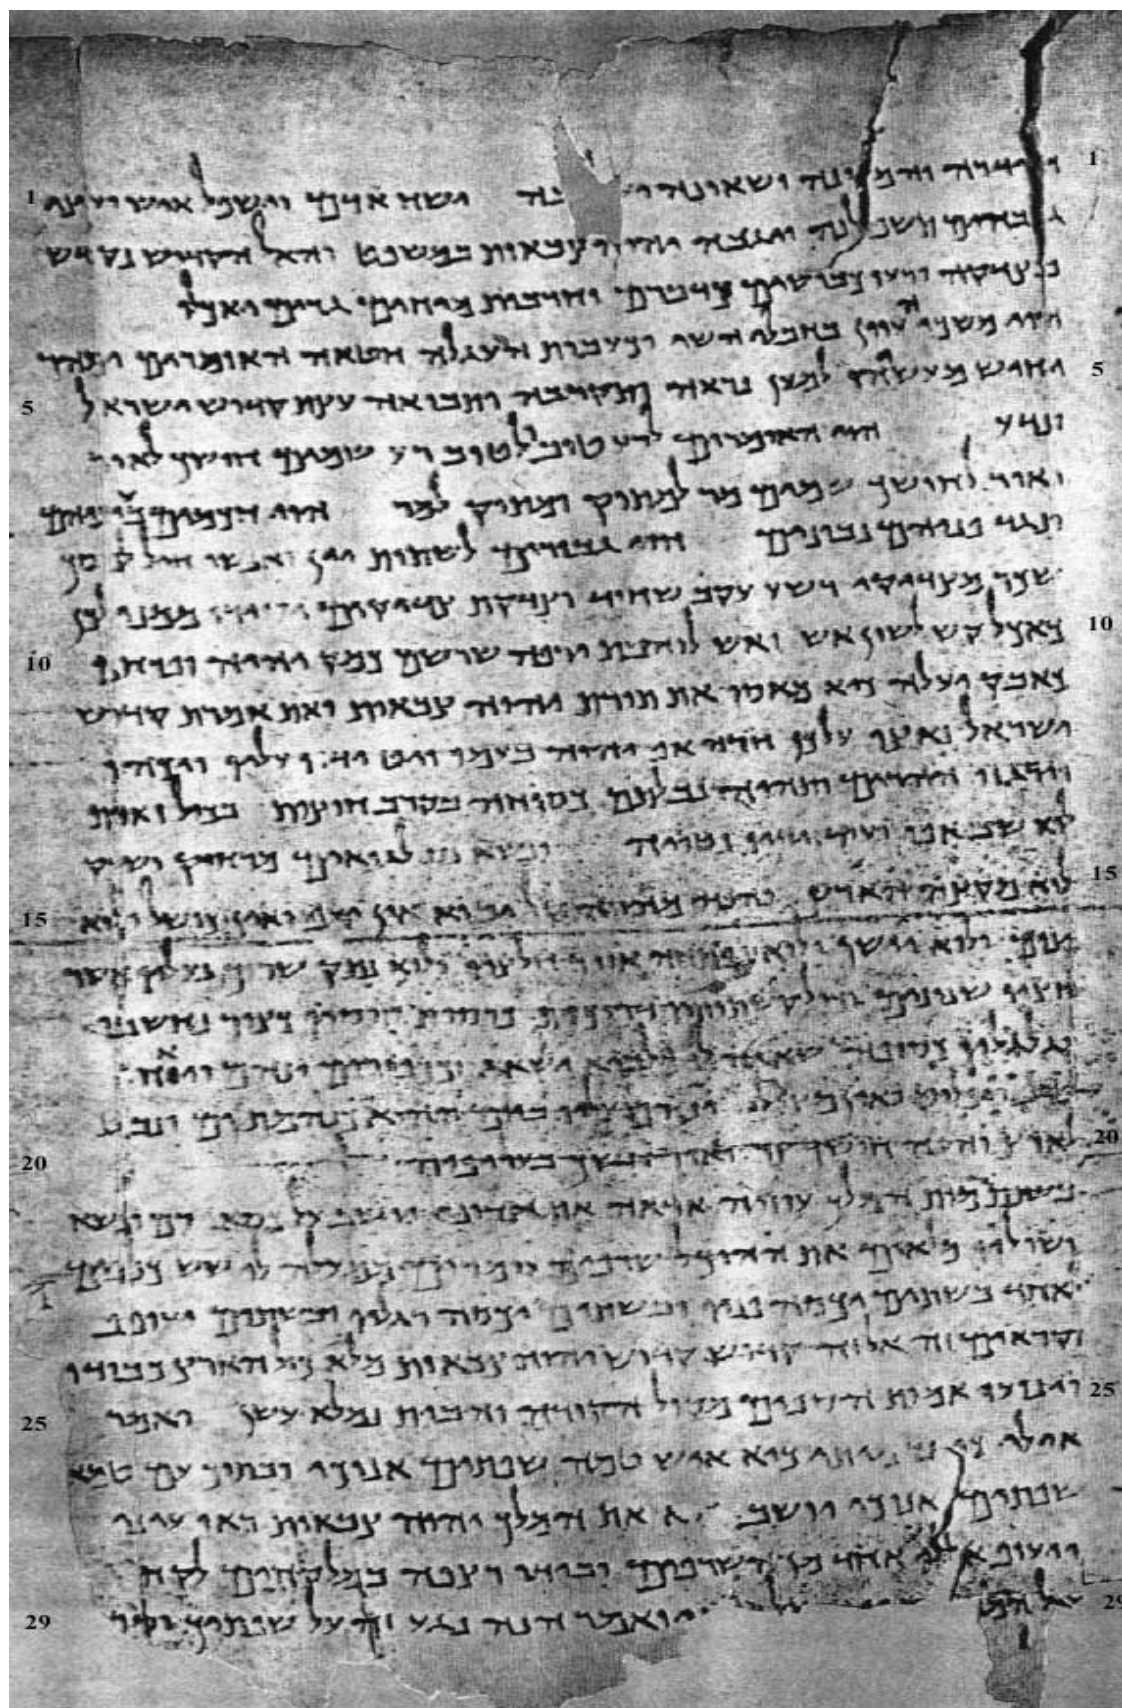 1 והמונה ושאונה בה ישח אדם וישפל איש ועיני 1
תשפלנה ויגבה יהוה צבאות במשפט והאל הקדוש נקדש
ורעו כבושים כדברם וחרבות מיחים גרים יאכלו
הוי משכי העוון בחבלי השי וכעבות העגלה חטאה האומרים ימהר
5 יחיש מעשיהו למען נראה ותקרבה ותבואה עצת קדוש ישראל 5
ונדע הוי האומרים לרע טוב ולטוב רע שומים חושך לאור
ואור לחושך שמים מר למתוק ומתוק למר הוי חכמים בעיניהם
ונגד פניהם נבונים הוי גבורים לשתות יין ואנשי חיל
שכר מצדיקי רשע עקב שוחד וצדקת צדיקים ממנו לכן
10 כאכל קש לשון אש ואש לוהבת ירפה שרשם כמק יהיה ופרחם 10
כאבק יעלה כיא מאסו את תורת יהוה צבאות ואת אמרת קדוש
ישראל נאצו על כן חרה אף יהוה בעמו ויט עליו ויכהו
וירגזו ההרים ותהיה נבלתם כסוחה בקרב חוצות בכול זואת
לוא שב אפו ועוד ידיו נטויה ונשא נס לגואים מרחוק ושרק
15 לוא מקצה הארץ והנה מהרה קל יבוא אין עיף ואין כושל לוא 15
ינום ולוא יישן ולוא אזור חלציו ולוא נתק שרוכי נעליו אשר
חציו שנונים וכול קשתותיו דרוכות פרסות סוסיו כצור נחשבו
וגלגליו כסופה שאגה כלביא ישאג וככפירים ינהם
ויפליט ואין מציל וינהם עליו ביום ההוא כנהמת ים ונבט
20 לארץ והנה חושך צר ואור חשך בעריפיה 20
בשנת מות המלך עוזיה אראה את אדוני יושב על כסא רם ונשא
ושוליו מלאים את ההיכל שרפים עומדים ממעלה לו שש כנפים
לאחד בשתים יכסה פניו ובשתים יכסה רגליו ובשתים יעופף
וקראים זה אל זה קדוש קדוש יהוה צבאות מלא כול הארץ כבודו
25 וינועו אמות הספים מקול הקורה והבית נמלא עשן ואמר 25
כיא איש טמה שפתים אנוכי ובתוך עם טמא
שפתים אנוכי יושב את המלך יהוה צבאות ראו עיני
ויעופ אלי אחד מן השרפים ובידו רצפה במלקחים לקח
29 ויואמר הנה נגע זה על שפתיך וסר 29